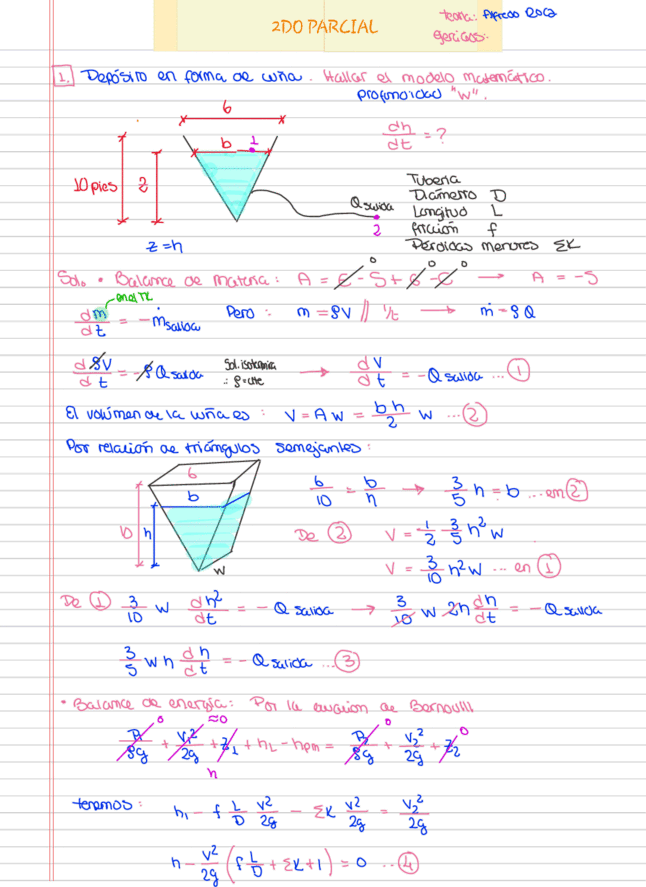 2DO PARCIAL
tema: Alfredo Roca
Ejercicios:
1. Depósito en forma de cuña. Hallar el modelo matemático.
profundidad "W".
6
b 1
dh/dt = ?
10 pies
2
z = h
Q salida
2
Tubería
Diámetro D
Longitud L
fricción f
Pérdidas menores ΣK
Sol. • Balance de materia: A = E - S + G - C → A = -S
0 0 0
en el TK
dm/dt = -ṁ salida Pero: m = ρV // 1/t → ṁ = ρQ
dρV/dt = -ρ Q salida Sol. isotérmica ∴ ρ = cte → dV/dt = -Q salida ... ①
El volúmen de la cuña es: V = A w = bh/2 w ... ②
Por relación de triángulos semejantes:
6
b
10
h
w
6/10 = b/h → 3/5 h = b ... en ②
De ② V = 1/2 3/5 h² w
V = 3/10 h² w ... en ①
De ① 3/10 w dh²/dt = - Q salida → 3/10 w 2h dh/dt = - Q salida
3/5 w h dh/dt = - Q salida ... ③
• Balance de energía: Por la ecuación de Bernoulli
P₁/ρg + V₁²/2g + z₁ + hL - hpm = P₂/ρg + V₂²/2g + z₂
0 ≈0 h 0 0
tenemos: h₁ - f L/D V²/2g - ΣK V²/2g = V₂²/2g
h - V²/2g (f L/D + ΣK + 1) = 0 ... ④